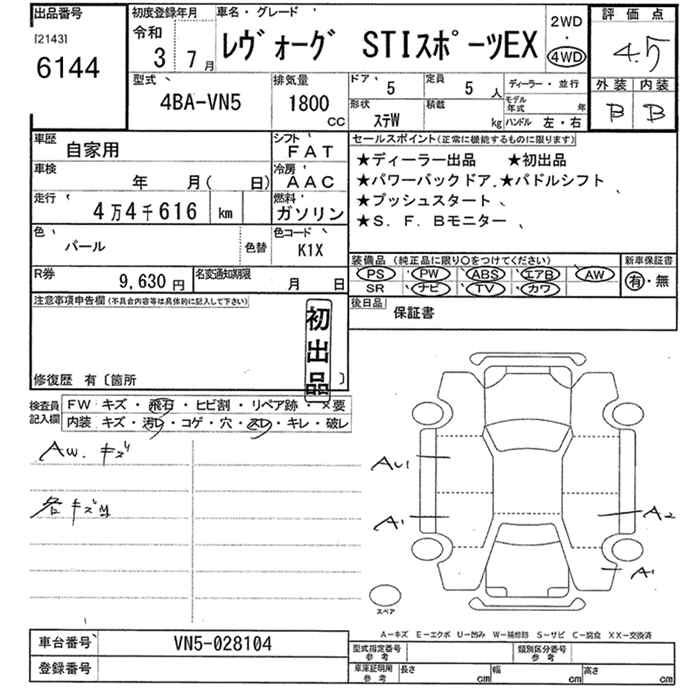 出品番号
[2143]
6144
初度登録年月
令和
3年 7月
車名・グレード
レヴォーグ STIスポーツEX
2WD
・
4WD
評価点
4.5
外装 内装
B B
型式
4BA-VN5
排気量
1800
CC
ドア
5
定員
5 人
形状
ステW
積載
kg
ディーラー・並行
モデル年式 年
ハンドル 左・右
車歴
自家用
シフト
FAT
車検
年 月( 日)
冷房
AAC
走行
4万4千616 km
燃料
ガソリン
色
パール
色替
色コード
K1X
R券
9,630 円
名変通知期限
月 日
セールスポイント(正常に機能するものに限ります)
★ディーラー出品 ★初出品
★パワーバックドア.★パドルシフト
★プッシュスタート
★S.F.Bモニター
装備品(純正品に限り○をつけてください)
PS PW ABS エアB AW
SR ナビ TV カワ
新車保証書
有・無
後日品
保証書
注意事項申告欄(不具合内容等は具体的に記入して下さい)
初出品
修復歴 有〔箇所 〕
検査員記入欄
FW キズ・飛石・ヒビ割・リペア跡・×要
内装 キズ・汚レ・コゲ・穴・スレ・キレ・破レ
AW. キズ
各キズ
AU1
A1
A2
A1
スペア
A-キズ E-エクボ U-凹み W-補修跡 S-サビ C-腐食 XX-交換済
車台番号
VN5-028104
登録番号
型式指定番号
参考
類別区分番号
参考
車庫証明用
参考
長さ cm
幅 cm
高さ cm